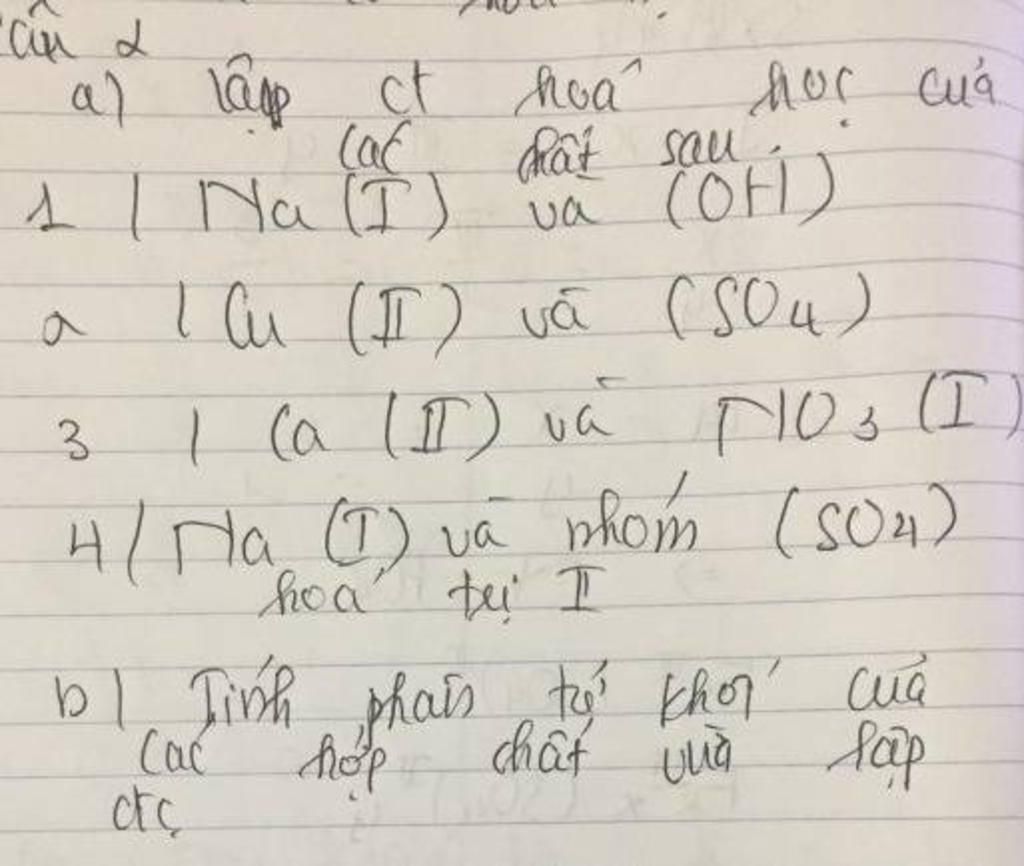 câu 2
a) lập ct hoá học của
các chất sau:
1 | Na (I) và (OH)
2 | Cu (II) và (SO4)
3 | Ca (II) và NO3 (I)
4 / Na (I) và nhóm (SO4)
hoá trị II
b) Tính phân tử khối của
các hợp chất vừa lập